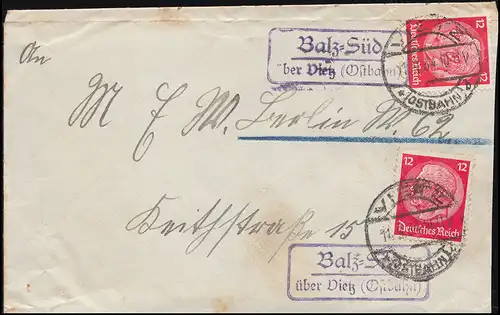 An
M E W. Berlin W. 62
Keithstraße 15
Balz-Süd
über Vietz (Ostbahn)
12
12
Deutsches Reich
(OSTBAHN)
12
Deutsches Reich
(OSTBAHN)
Balz-S
über Vietz (Ostbahn)